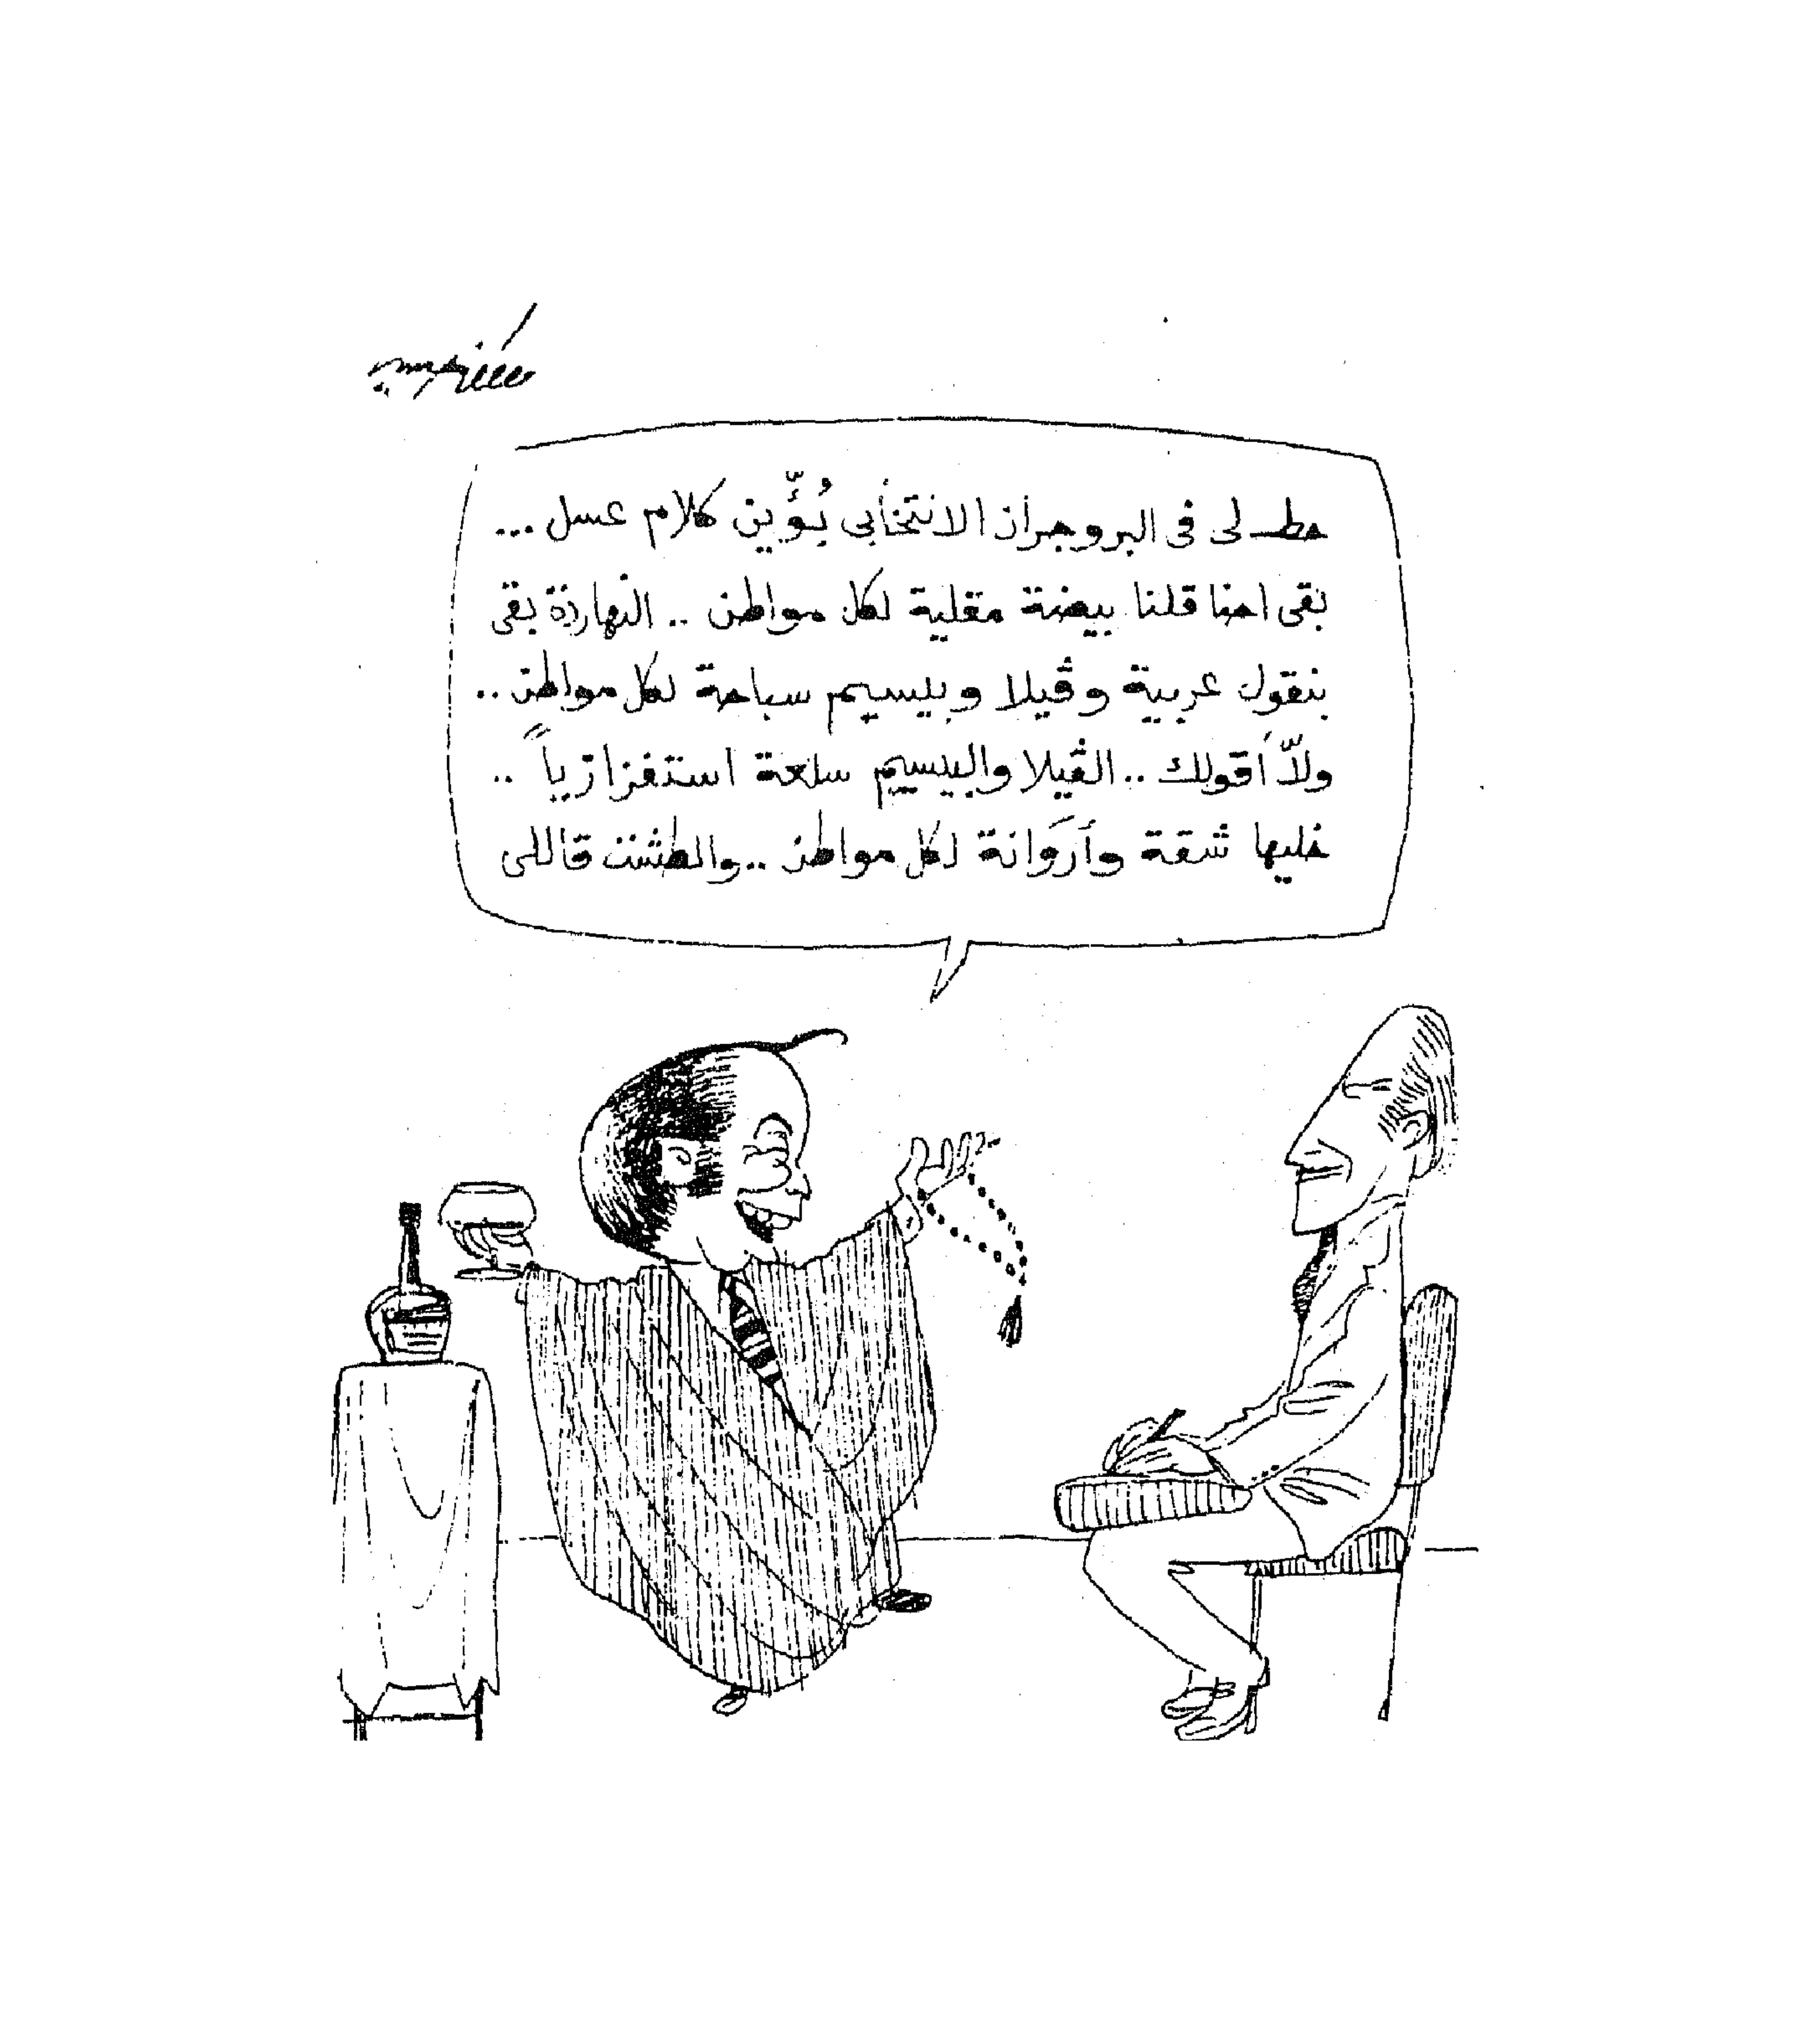 حط لى فى البروجرام الانتخابى بُؤّين كلام عسل ...
بقى احنا قلنا بيضة مقلية لكل مواطن .. النهاردة بقى
بنقول عربية وڤيلا وبيسيم سباحة لكل مواطن ..
ولاّ أقولك .. الڤيلا والبيسيم سلعة استفزازياً ..
خليها شقة وأروانة لكل مواطن .. والطشت قاللى